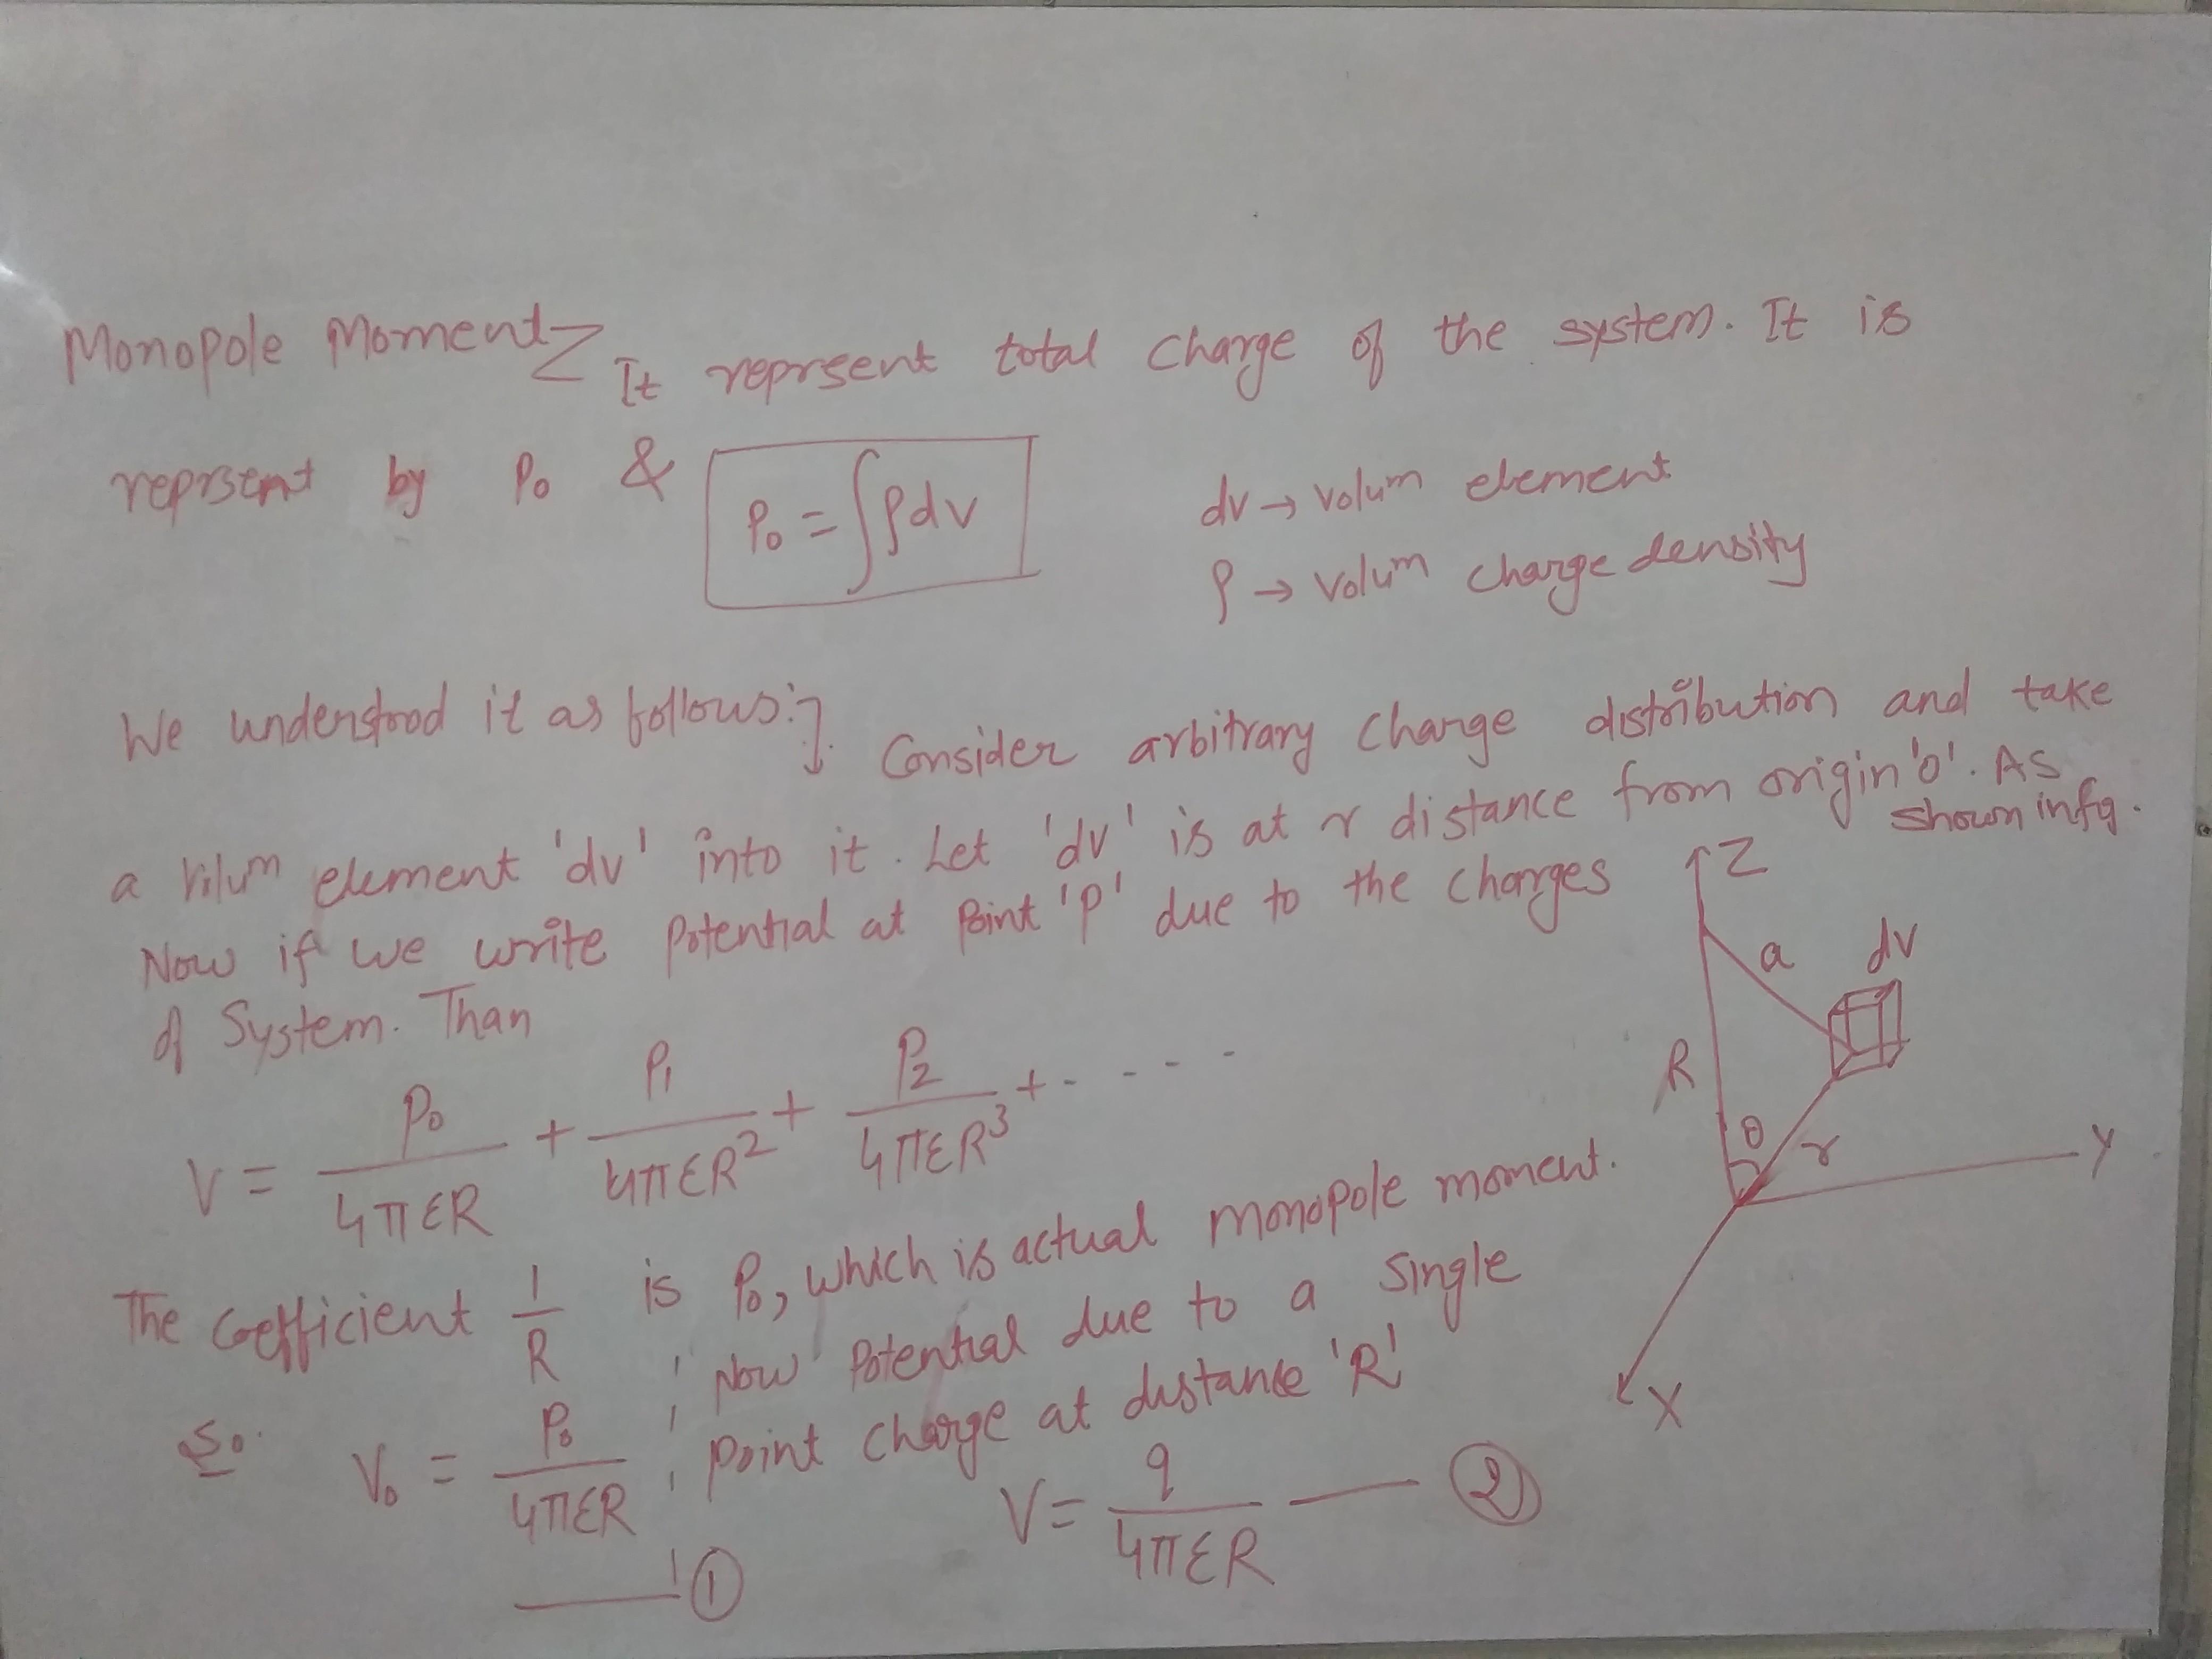 Monopole Moment It reprsent total charge of the system. It is
reprsent by P₀ & P₀ = ∫ρdv
dv → volum element
ρ → volum charge density
We understood it as follows:
Consider arbitrary charge distribution and take
a vilum element 'dv' into it. Let 'dv' is at r distance from origin 'o'. As
shown in fig.
Now if we write potential at point 'P' due to the charges
of System. Than
V = P₀/4πεR + P₁/4πεR² + P₂/4πεR³ + - - - -
The coefficient 1/R is P₀, which is actual monopole moment.
So. V₀ = P₀/4πεR —— ①
Now Potential due to a single
point charge at distance 'R'
V = q/4πεR —— ②
Z
a
dv
R
θ
r
Y
X